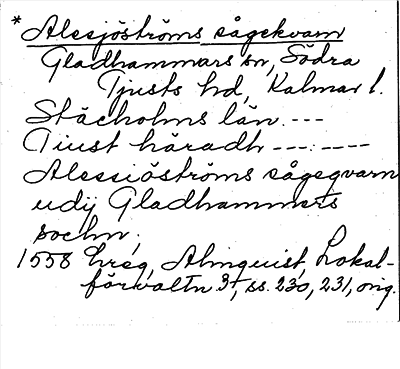 * Alessjöströms sågekvarn
Gladhammars sn, Södra
Tjusts hd, Kalmar l.
Stächolms län. ---
Tiust häradh ---:----
Alessiöströms sågeqvarn
udij Gladhammers
sochn,
1558 Ereg, Almquist, Lokal-
förvaltn 3t, ss. 230, 231, orig.